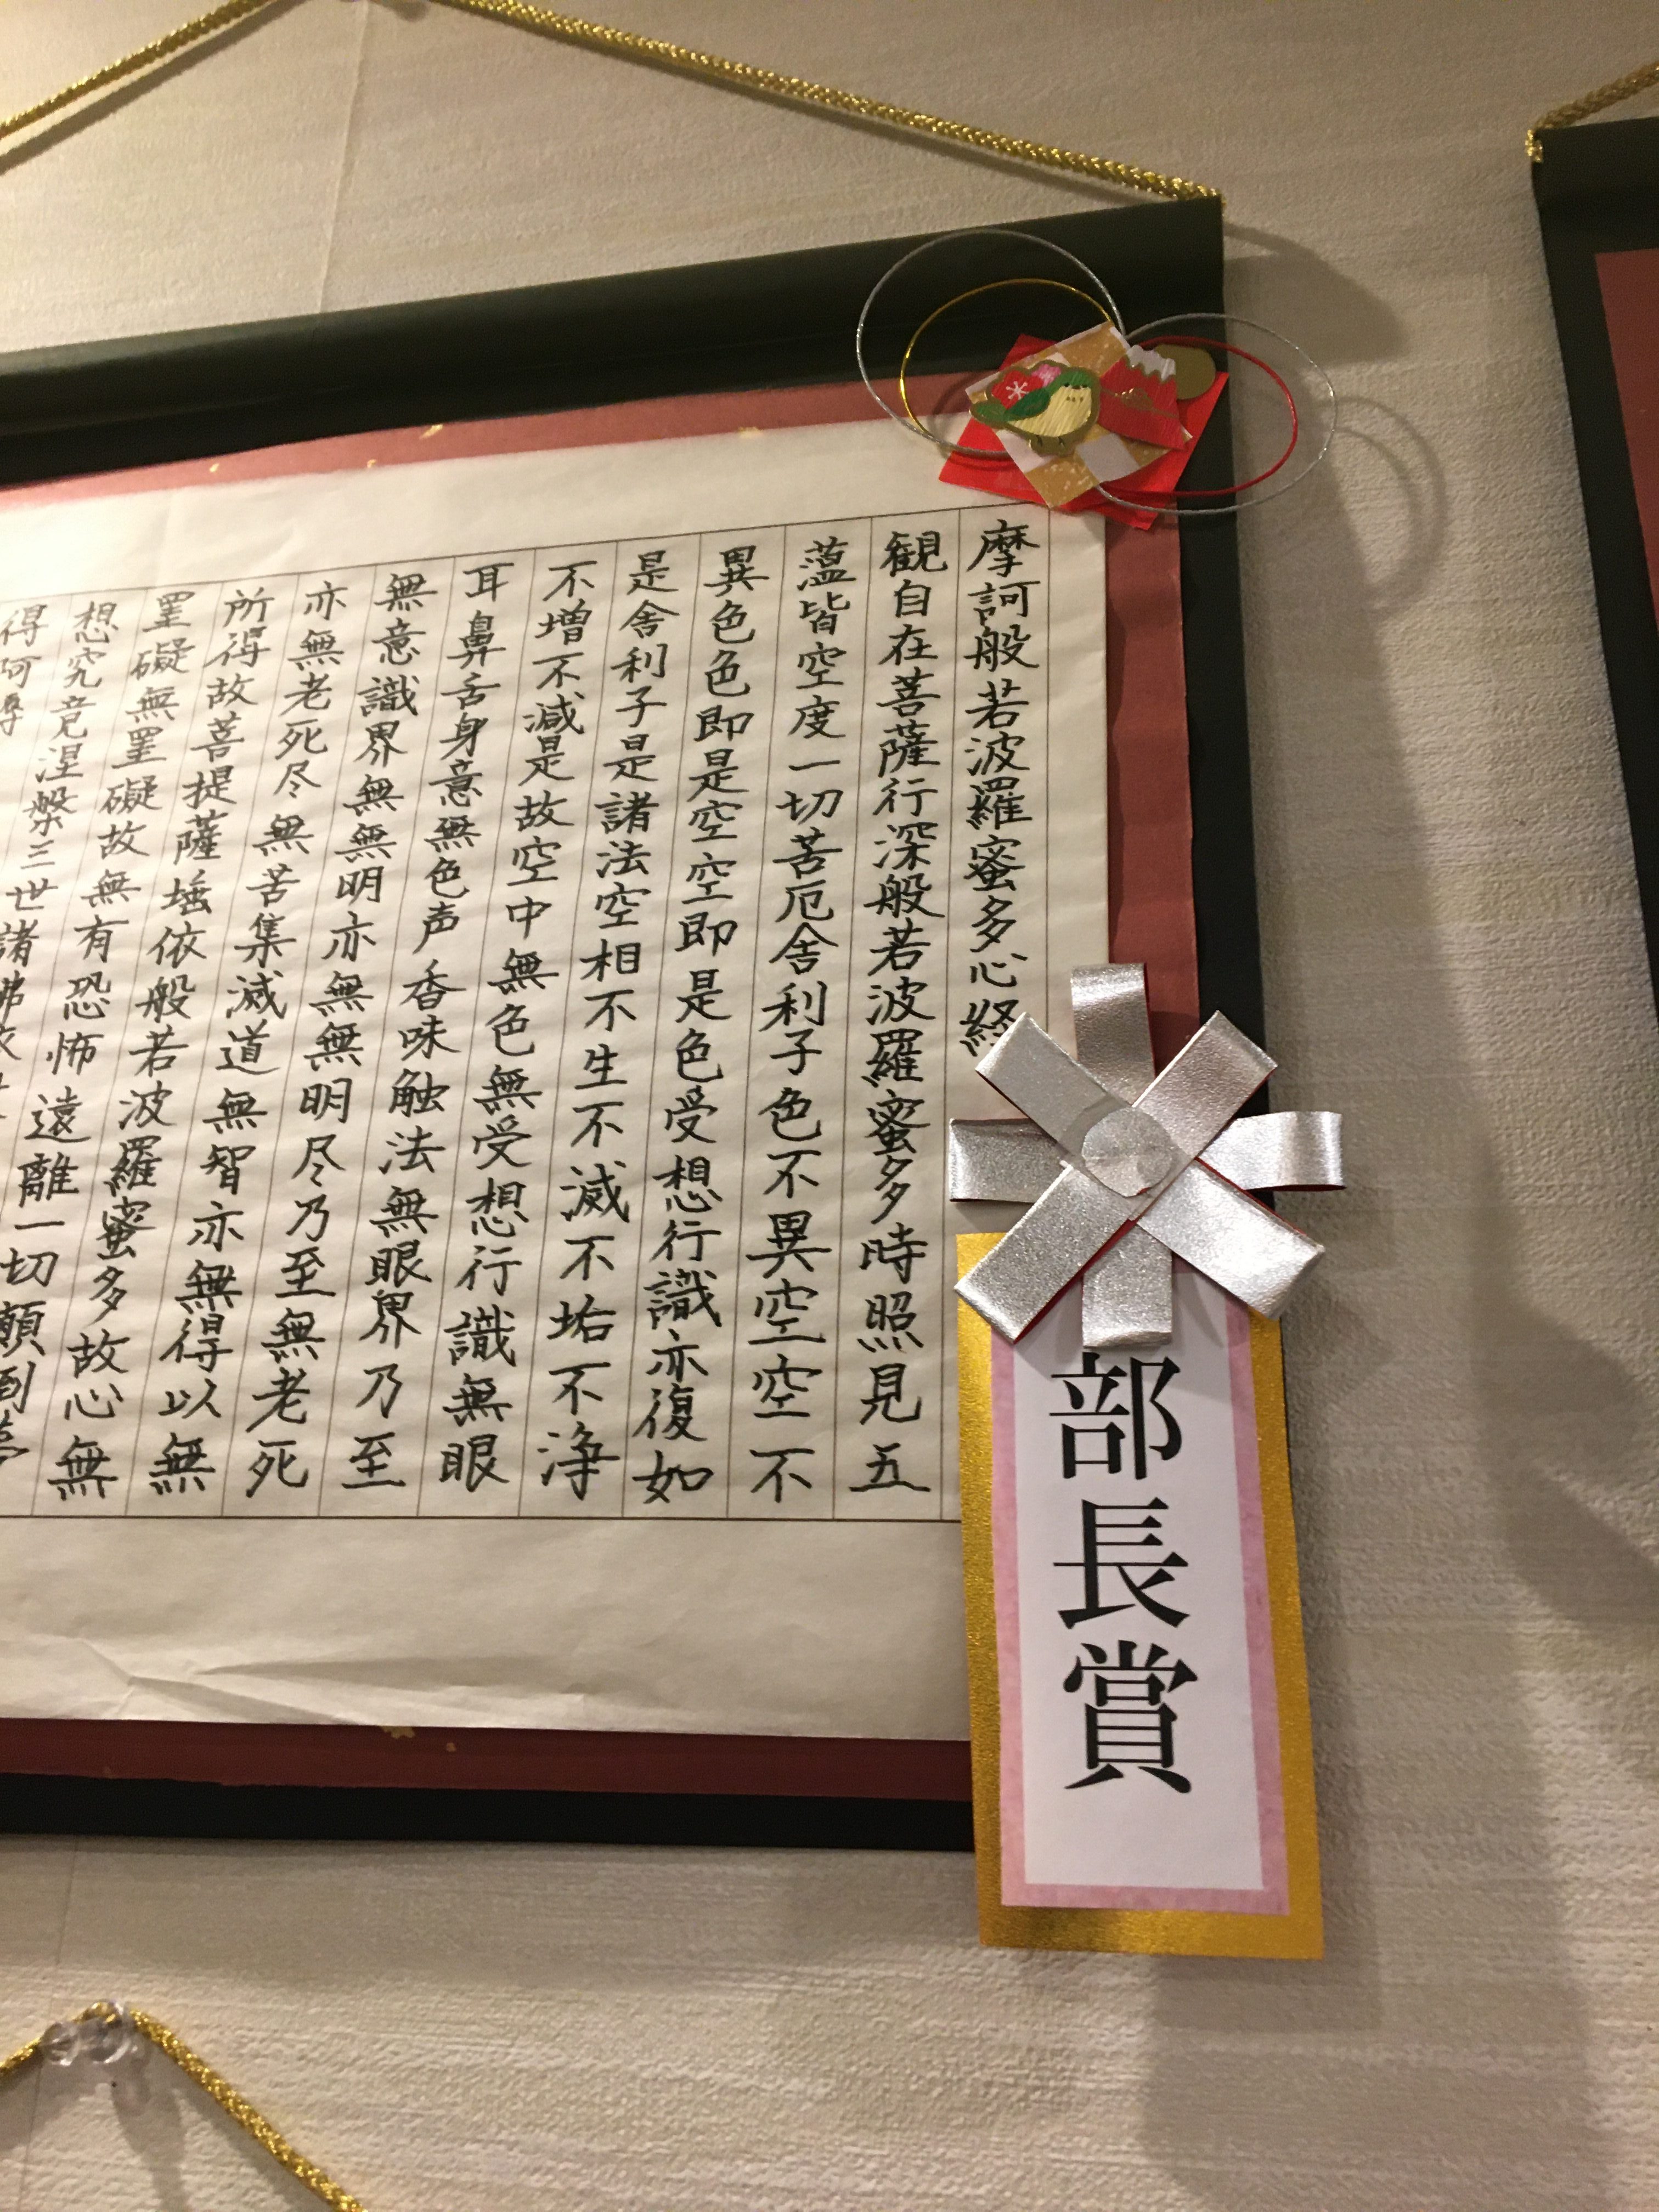 摩訶般若波羅蜜多心経
観自在菩薩行深般若波羅蜜多時照見五
薀皆空度一切苦厄舎利子色不異空空不
異色色即是空空即是色受想行識亦復如
是舎利子是諸法空相不生不滅不垢不浄
不増不減是故空中無色無受想行識無眼
耳鼻舌身意無色声香味触法無眼界乃至
無意識界無無明亦無無明尽乃至無老死
亦無老死尽無苦集滅道無智亦無得以無
所得故菩提薩埵依般若波羅蜜多故心無
罣礙無罣礙故無有恐怖遠離一切顛倒夢
想究竟涅槃三世諸佛依
得阿
部長賞